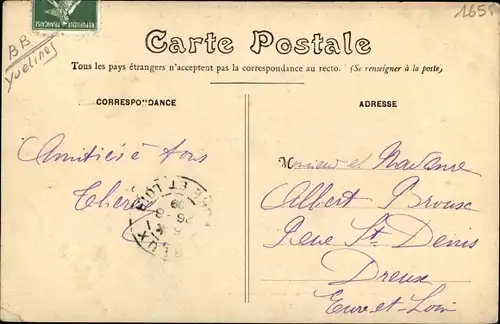 1659
REPUBLIQUE FRANÇAISE
BB
Yvelines
Carte Postale
Tous les pays étrangers n'acceptent pas la correspondance au recto. (Se renseigner à la poste)
CORRESPO"DANCE
ADRESSE
Amitiés à tous
Monsieur et Madame
Albert Brouse
Rue St Denis
Dreux
Eure-et-Loir